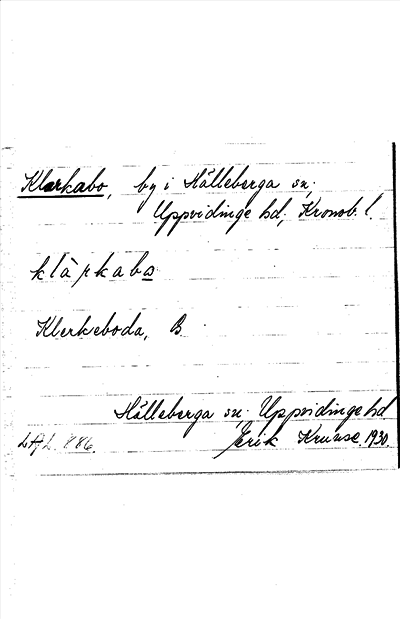 Klarkabo, by i Hälleberga sn,
Uppvidinge hd, Kronob. l.
klàrkabo
Klerkeboda, B
Hälleberga sn, Uppvidinge hd
LAL 886. Erik Kruuse 1930.